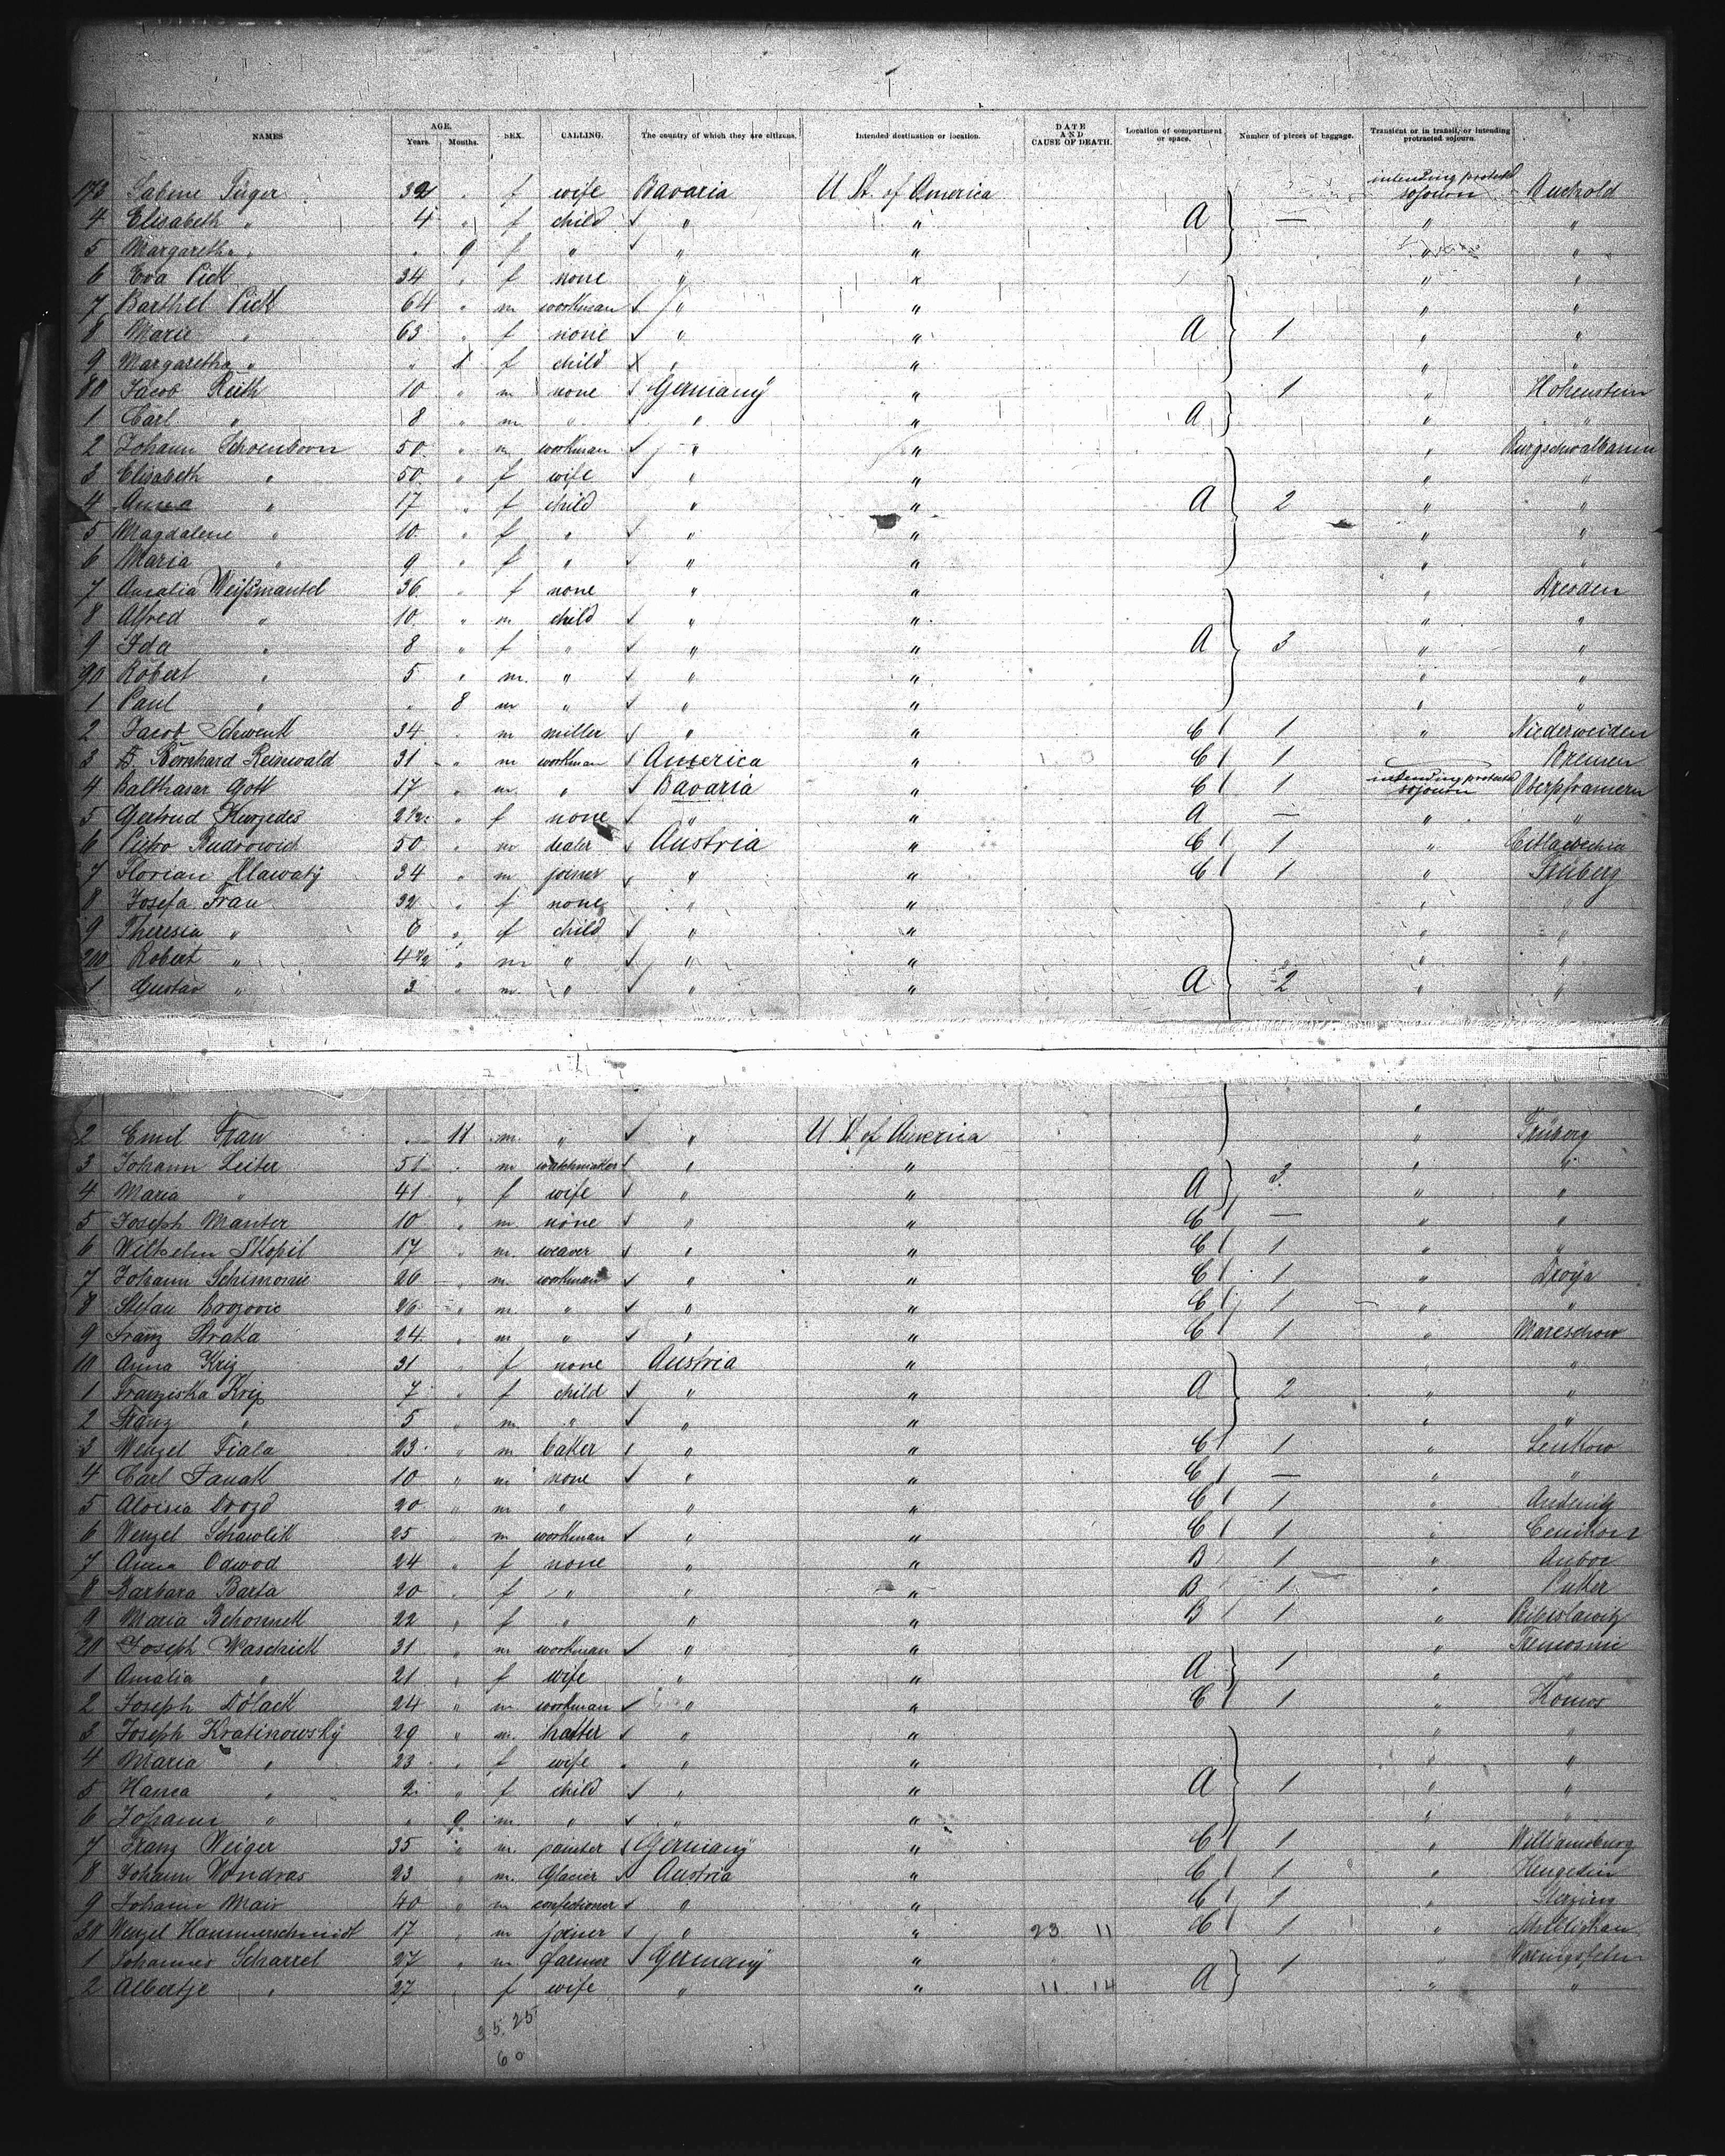 NAMES AGE. Years. Months. SEX. CALLING. The country of which they are citizens. Intended destination or location. DATE AND CAUSE OF DEATH. Location of compartment or space. Number of pieces of baggage. Transient or in transit, or intending protracted sojourn.
173 Sabine Füger 32 " f wife Bavaria U St. of America intending protrctd sojourn
4 Elisabeth " 4 " f child " " A — " "
5 Margaretha " " 9 f " " " " "
6 Eva Pick 34 " f none " " " "
7 Barthel Pick 64 " m workman " " " "
8 Marie " 63 " f none " " A 1 " "
9 Margaretha " " f child " " " "
80 Jacob Reith 10 " m none Germany " 1 " Hohenstein
1 Carl " 8 " m " " " A " "
2 Johann Schoenborn 50 " m workman " " "
3 Elisabeth " 50 " f wife " " " "
4 Anna " 17 " f child " " A 2 " "
5 Magdalene " 10 " f " " " " "
6 Maria " 9 " f " " " " "
7 Amalia Weißmantel 36 f none " " " Dresden
8 Alfred " 10 " m child " " " "
9 Ida " 8 " f " " " A 3 " "
90 Robert " 5 " m. " " " " "
1 Paul " " 8 m " " " " "
2 Jacob Schwenk 34 " m miller " " C 1 " Niederweiden
3 Bernhard Reinwald 31 " m workman America " C 1 Bremen
4 Balthasar Gott 17 " m. " Bavaria " C 1 intending protrctd sojourn Oberpframern
5 Gertrud 2½ " f none " " A — " "
6 Pietro Budrowich 50 " m dealer Austria " C 1 "
7 Florian 34 " m joiner " " C 1 "
8 Josefa Frau 32 " f none " " " "
9 Theresia " 6 " f child " " " "
200 Robert " 4½ " m " " " " "
1 Gustav " 3 " m. " " " A 2 " "
2 Emil Frau " 11 m. " " U St. of America "
3 Johann Leiter 51 " m watchmaker " " " "
4 Maria " 41 " f wife " " A 3 " "
5 Joseph Manter 10 " m. none " " C — " "
6 Wilhelm Skopil 17 " m. weaver " " C 1 " "
7 Johann Schimonic 26 " m. workman " " C 1 "
8 Stefan Brozovic 26 " m. " " " C 1 " "
9 Franz Straka 24 " m " " " C 1 " Mareschow
10 Anna Kriz 31 " f none Austria " " "
1 Franziska Kriz 7 " f child " " A 2 " "
2 Franz " 5 " m. " " " " "
3 Wenzel Fiala 23 " m baker " " C 1 " Senkow
4 Carl 10 " m none " " C — " "
5 Aloisia Drozd 20 " m " " " C 1 "
6 Wenzel Schawlik 25 " m workman " " C 1 "
7 Anna Odwod 24 " f none " " B 1 "
8 Barbara Barta 20 " f " " " B 1 "
9 Maria 22 " f " " " B 1 "
20 Joseph Waschick 31 " m workman " " "
1 Amalia " 21 " f wife " " A 1 " "
2 Joseph Dolack 24 " m workman " " C 1 "
3 Joseph Kratinowsky 29 " m. hatter " " " "
4 Maria " 23 " f wife " " " "
5 " 2 " f child " " A 1 " "
6 Johann " " 9 m. " " " " "
7 Franz Weiger 35 " m. painter Germany " C 1 " Williamsburg
8 Johann Vondras 23 " m. Glacier Austria " C 1 "
9 Johann Mair 40 " m confectioner " " C 1 "
30 Wenzel Hammerschmidt 17 " m joiner " " 23 11 C 1 "
1 Johannes Scharrel 27 " m farmer Germany " 1 "
2 Albertje " 27 " f wife " " 11 14 A " "
35. 25
60